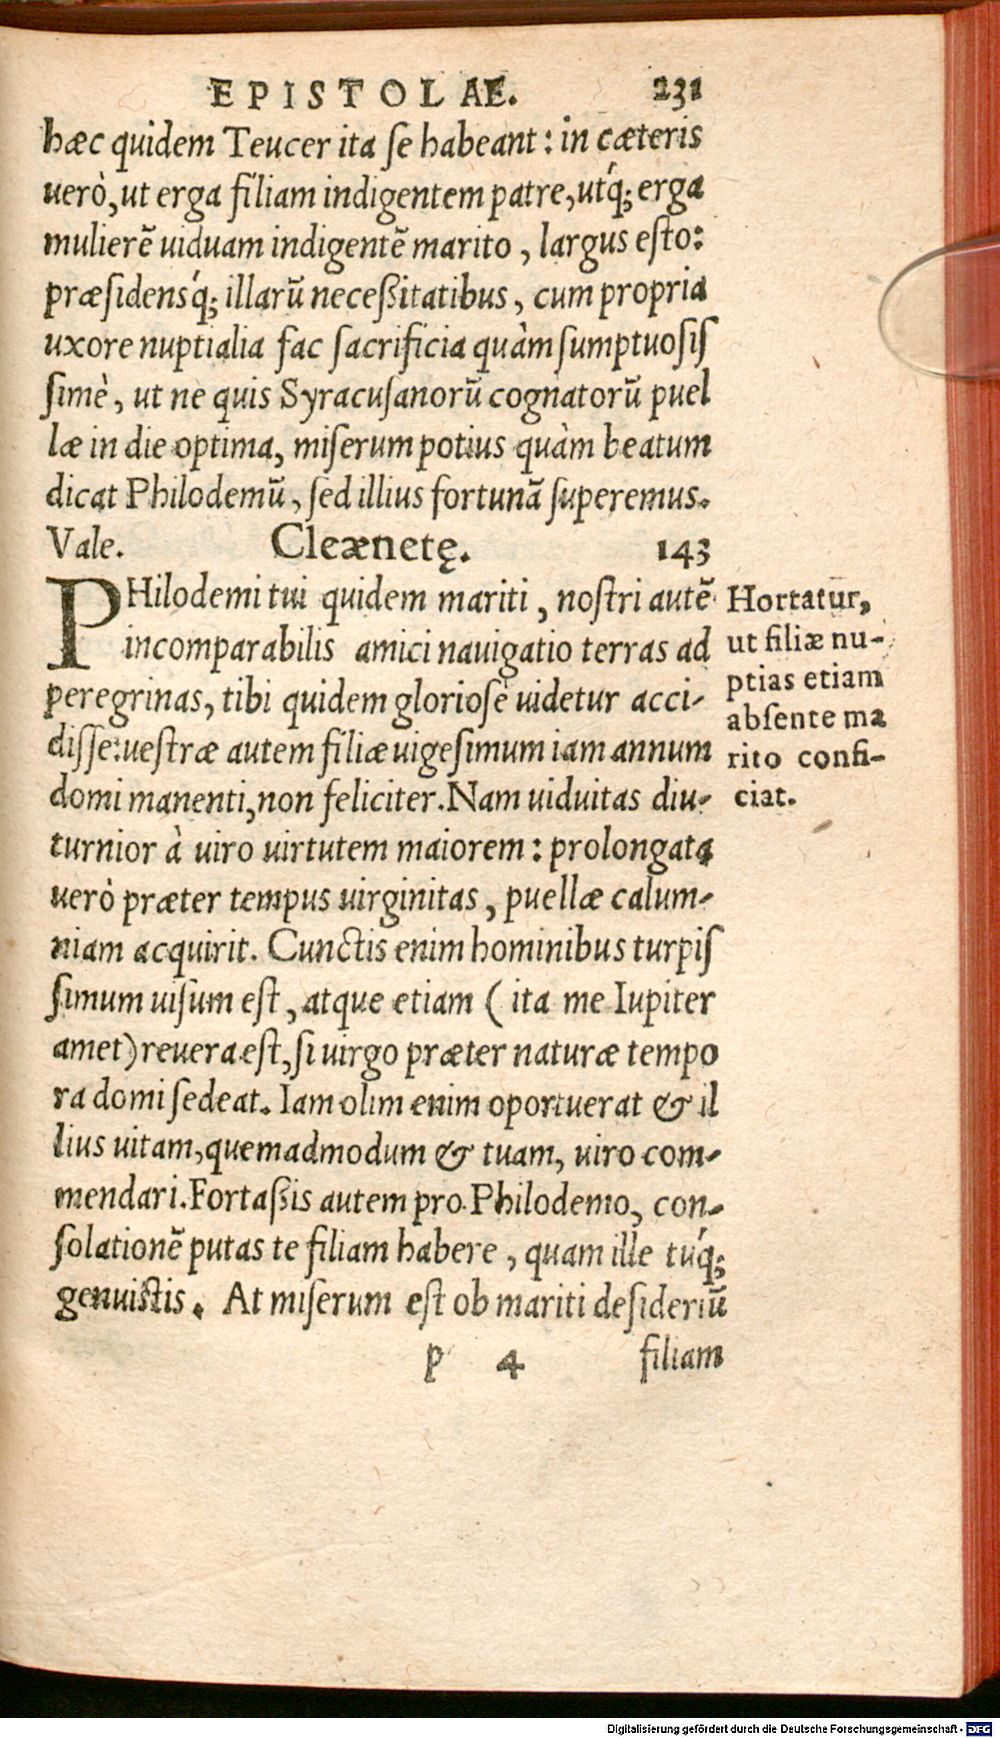 EPISTOLAE. 231
hæc quidem Teucer ita ſe habeant: in cæteris
uerò, ut erga filiam indigentem patre, utq́; erga
mulierẽ uiduam indigentẽ marito, largus eſto:
præſidensq́; illarũ neceßitatibus, cum propria
uxore nuptialia fac ſacrificia quàm ſumptuoſiſ
ſimè, ut ne quis Syracuſanorũ cognatorũ puel
læ in die optima, miſerum potius quàm beatum
dicat Philodemũ, ſed illius fortunã ſuperemus.
Vale. Cleænetę. 143
PHilodemi tui quidem mariti, noſtri autẽ
incomparabilis amici nauigatio terras ad
peregrinas, tibi quidem glorioſè uidetur acci-
diſſe: ueſtræ autem filiæ uigeſimum iam annum
domi manenti, non feliciter. Nam uiduitas diu-
turnior à uiro uirtutem maiorem: prolongata
uerò præter tempus uirginitas, puellæ calum-
niam acquirit. Cunctis enim hominibus turpiſ
ſimum uiſum eſt, atque etiam (ita me Iupiter
amet) reuera eſt, ſi uirgo præter naturæ tempo
ra domi ſedeat. Iam olim enim oportuerat & il
lius uitam, quemadmodum & tuam, uiro com-
mendari. Fortaßis autem pro Philodemo, con-
ſolationẽ putas te filiam habere, quam ille tuq́;
genuiſtis. At miſerum eſt ob mariti deſideriũ
p 4 filiam
Hortatur,
ut filiæ nu-
ptias etiam
abſente ma
rito confi-
ciat.
Digitalisierung gefördert durch die Deutsche Forschungsgemeinschaft - DFG